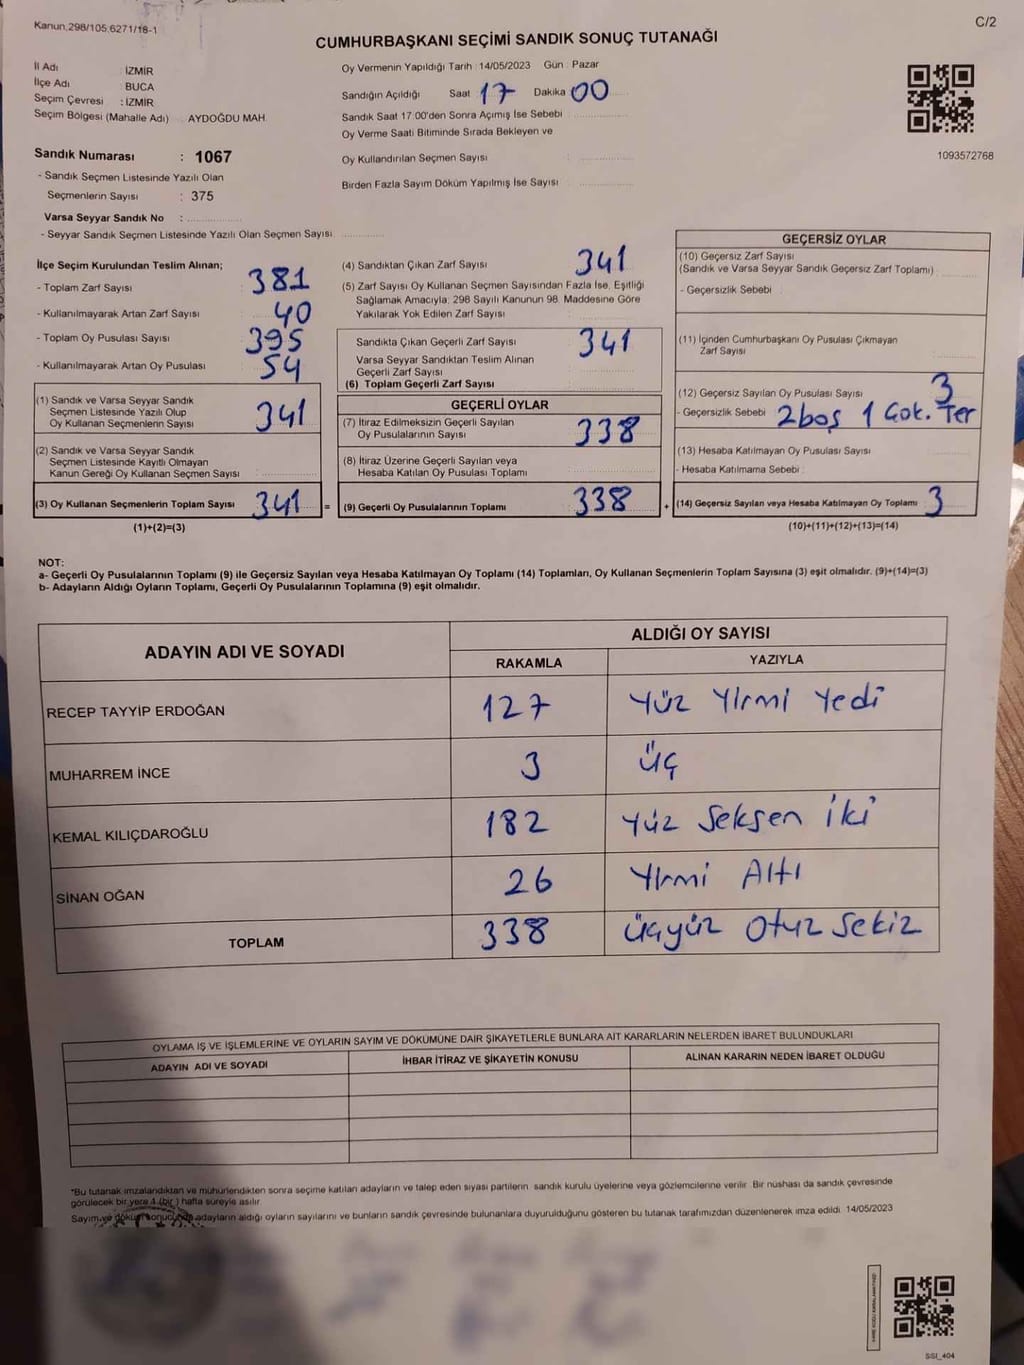 Kanun,298/105,6271/18-1
C/2
CUMHURBAŞKANI SEÇİMİ SANDIK SONUÇ TUTANAĞI
İl Adı : İZMİR
İlçe Adı : BUCA
Seçim Çevresi : İZMİR
Seçim Bölgesi (Mahalle Adı) AYDOĞDU MAH.
Sandık Numarası : 1067
- Sandık Seçmen Listesinde Yazılı Olan
Seçmenlerin Sayısı : 375
Varsa Seyyar Sandık No :
- Seyyar Sandık Seçmen Listesinde Yazılı Olan Seçmen Sayısı:
Oy Vermenin Yapıldığı Tarih :14/05/2023 Gün : Pazar
Sandığın Açıldığı Saat 17 Dakika 00
Sandık Saat 17:00'den Sonra Açımış İse Sebebi
Oy Verme Saati Bitiminde Sırada Bekleyen ve
Oy Kullandırılan Seçmen Sayısı :
Birden Fazla Sayım Döküm Yapılmış İse Sayısı :
1093572768
İlçe Seçim Kurulundan Teslim Alınan;
- Toplam Zarf Sayısı 381
- Kullanılmayarak Artan Zarf Sayısı 40
- Toplam Oy Pusulası Sayısı 395
- Kullanılmayarak Artan Oy Pusulası 54
(1) Sandık ve Varsa Seyyar Sandık
Seçmen Listesinde Yazılı Olup
Oy Kullanan Seçmenlerin Sayısı 341
(2) Sandık ve Varsa Seyyar Sandık
Seçmen Listesinde Kayıtlı Olmayan
Kanun Gereği Oy Kullanan Seçmen Sayısı
(3) Oy Kullanan Seçmenlerin Toplam Sayısı 341 =
(1)+(2)=(3)
(4) Sandıktan Çıkan Zarf Sayısı 341
(5) Zarf Sayısı Oy Kullanan Seçmen Sayısından Fazla İse, Eşitliği
Sağlamak Amacıyla; 298 Sayılı Kanunun 98. Maddesine Göre
Yakılarak Yok Edilen Zarf Sayısı
Sandıkta Çıkan Geçerli Zarf Sayısı 341
Varsa Seyyar Sandıktan Teslim Alınan
Geçerli Zarf Sayısı
(6) Toplam Geçerli Zarf Sayısı
GEÇERLİ OYLAR
(7) İtiraz Edilmeksizin Geçerli Sayılan
Oy Pusulalarının Sayısı 338
(8) İtiraz Üzerine Geçerli Sayılan veya
Hesaba Katılan Oy Pusulası Toplamı
(9) Geçerli Oy Pusulalarının Toplamı 338 +
GEÇERSİZ OYLAR
(10) Geçersiz Zarf Sayısı
(Sandık ve Varsa Seyyar Sandık Geçersiz Zarf Toplamı)
- Geçersizlik Sebebi
(11) İçinden Cumhurbaşkanı Oy Pusulası Çıkmayan
Zarf Sayısı
(12) Geçersiz Sayılan Oy Pusulası Sayısı 3
- Geçersizlik Sebebi 2 boş 1 Çok. Ter
(13) Hesaba Katılmayan Oy Pusulası Sayısı
- Hesaba Katılmama Sebebi
(14) Geçersiz Sayılan veya Hesaba Katılmayan Oy Toplamı 3
(10)+(11)+(12)+(13)=(14)
NOT:
a- Geçerli Oy Pusulalarının Toplamı (9) ile Geçersiz Sayılan veya Hesaba Katılmayan Oy Toplamı (14) Toplamları, Oy Kullanan Seçmenlerin Toplam Sayısına (3) eşit olmalıdır. (9)+(14)=(3)
b- Adayların Aldığı Oyların Toplamı, Geçerli Oy Pusulalarının Toplamına (9) eşit olmalıdır.
ADAYIN ADI VE SOYADI
ALDIĞI OY SAYISI
RAKAMLA YAZIYLA
RECEP TAYYİP ERDOĞAN 127 Yüz Yirmi Yedi
MUHARREM İNCE 3 Üç
KEMAL KILIÇDAROĞLU 182 Yüz Seksen İki
SİNAN OĞAN 26 Yirmi Altı
TOPLAM 338 Üçyüz Otuz Sekiz
OYLAMA İŞ VE İŞLEMLERİNE VE OYLARIN SAYIM VE DÖKÜMÜNE DAİR ŞİKAYETLERLE BUNLARA AİT KARARLARIN NELERDEN İBARET BULUNDUKLARI
ADAYIN ADI VE SOYADI İHBAR İTİRAZ VE ŞİKAYETİN KONUSU ALINAN KARARIN NEDEN İBARET OLDUĞU
*Bu tutanak imzalandıktan ve mühürlendikten sonra seçime katılan adayların ve talep eden siyasi partilerin sandık kurulu üyelerine veya gözlemcilerine verilir. Bir nüshası da sandık çevresinde
görülecek bir yere 1 (bir) hafta süreyle asılır.
Sayım ve döküm sonucunda adayların aldığı oyların sayılarını ve bunların sandık çevresinde bulunanlara duyurulduğunu gösteren bu tutanak tarafımızdan düzenlenerek imza edildi. 14/05/2023
SSI_404